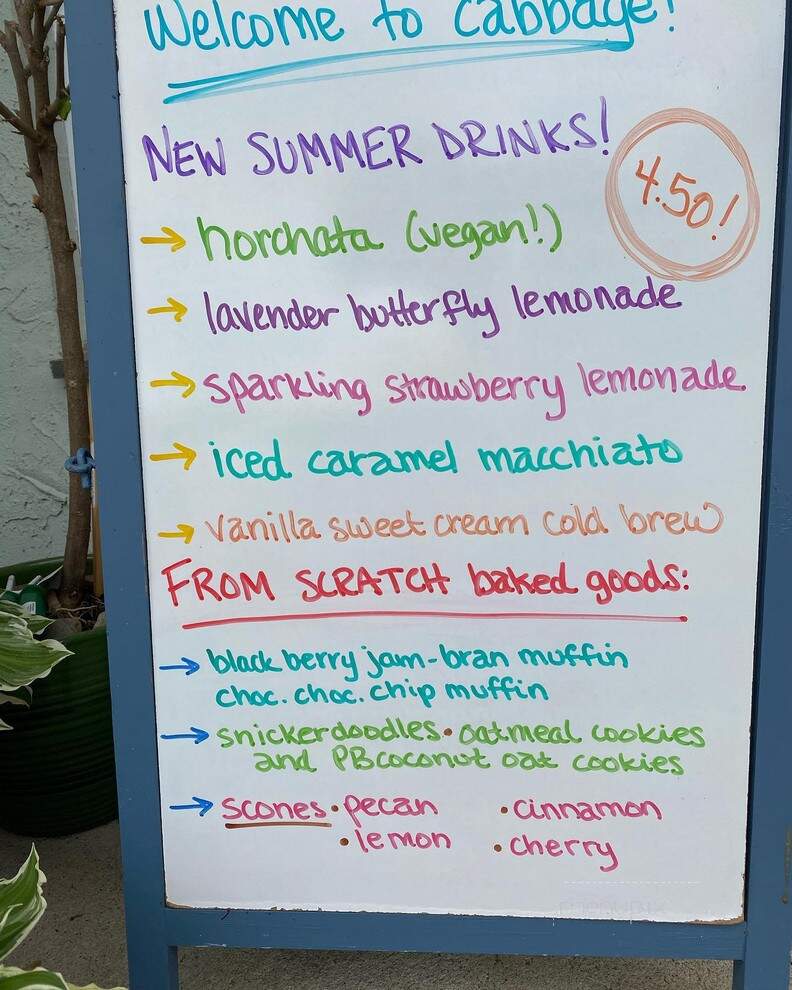 Welcome to Cabbage!
NEW SUMMER DRINKS!
4.50!
→ horchata (vegan!)
→ lavender butterfly lemonade
→ sparkling strawberry lemonade
→ iced caramel macchiato
→ vanilla sweet cream cold brew
FROM SCRATCH baked goods:
→ blackberry jam-bran muffin
choc. choc. chip muffin
→ snickerdoodles • oatmeal cookies
and PB coconut oat cookies
→ scones • pecan • cinnamon
• lemon • cherry